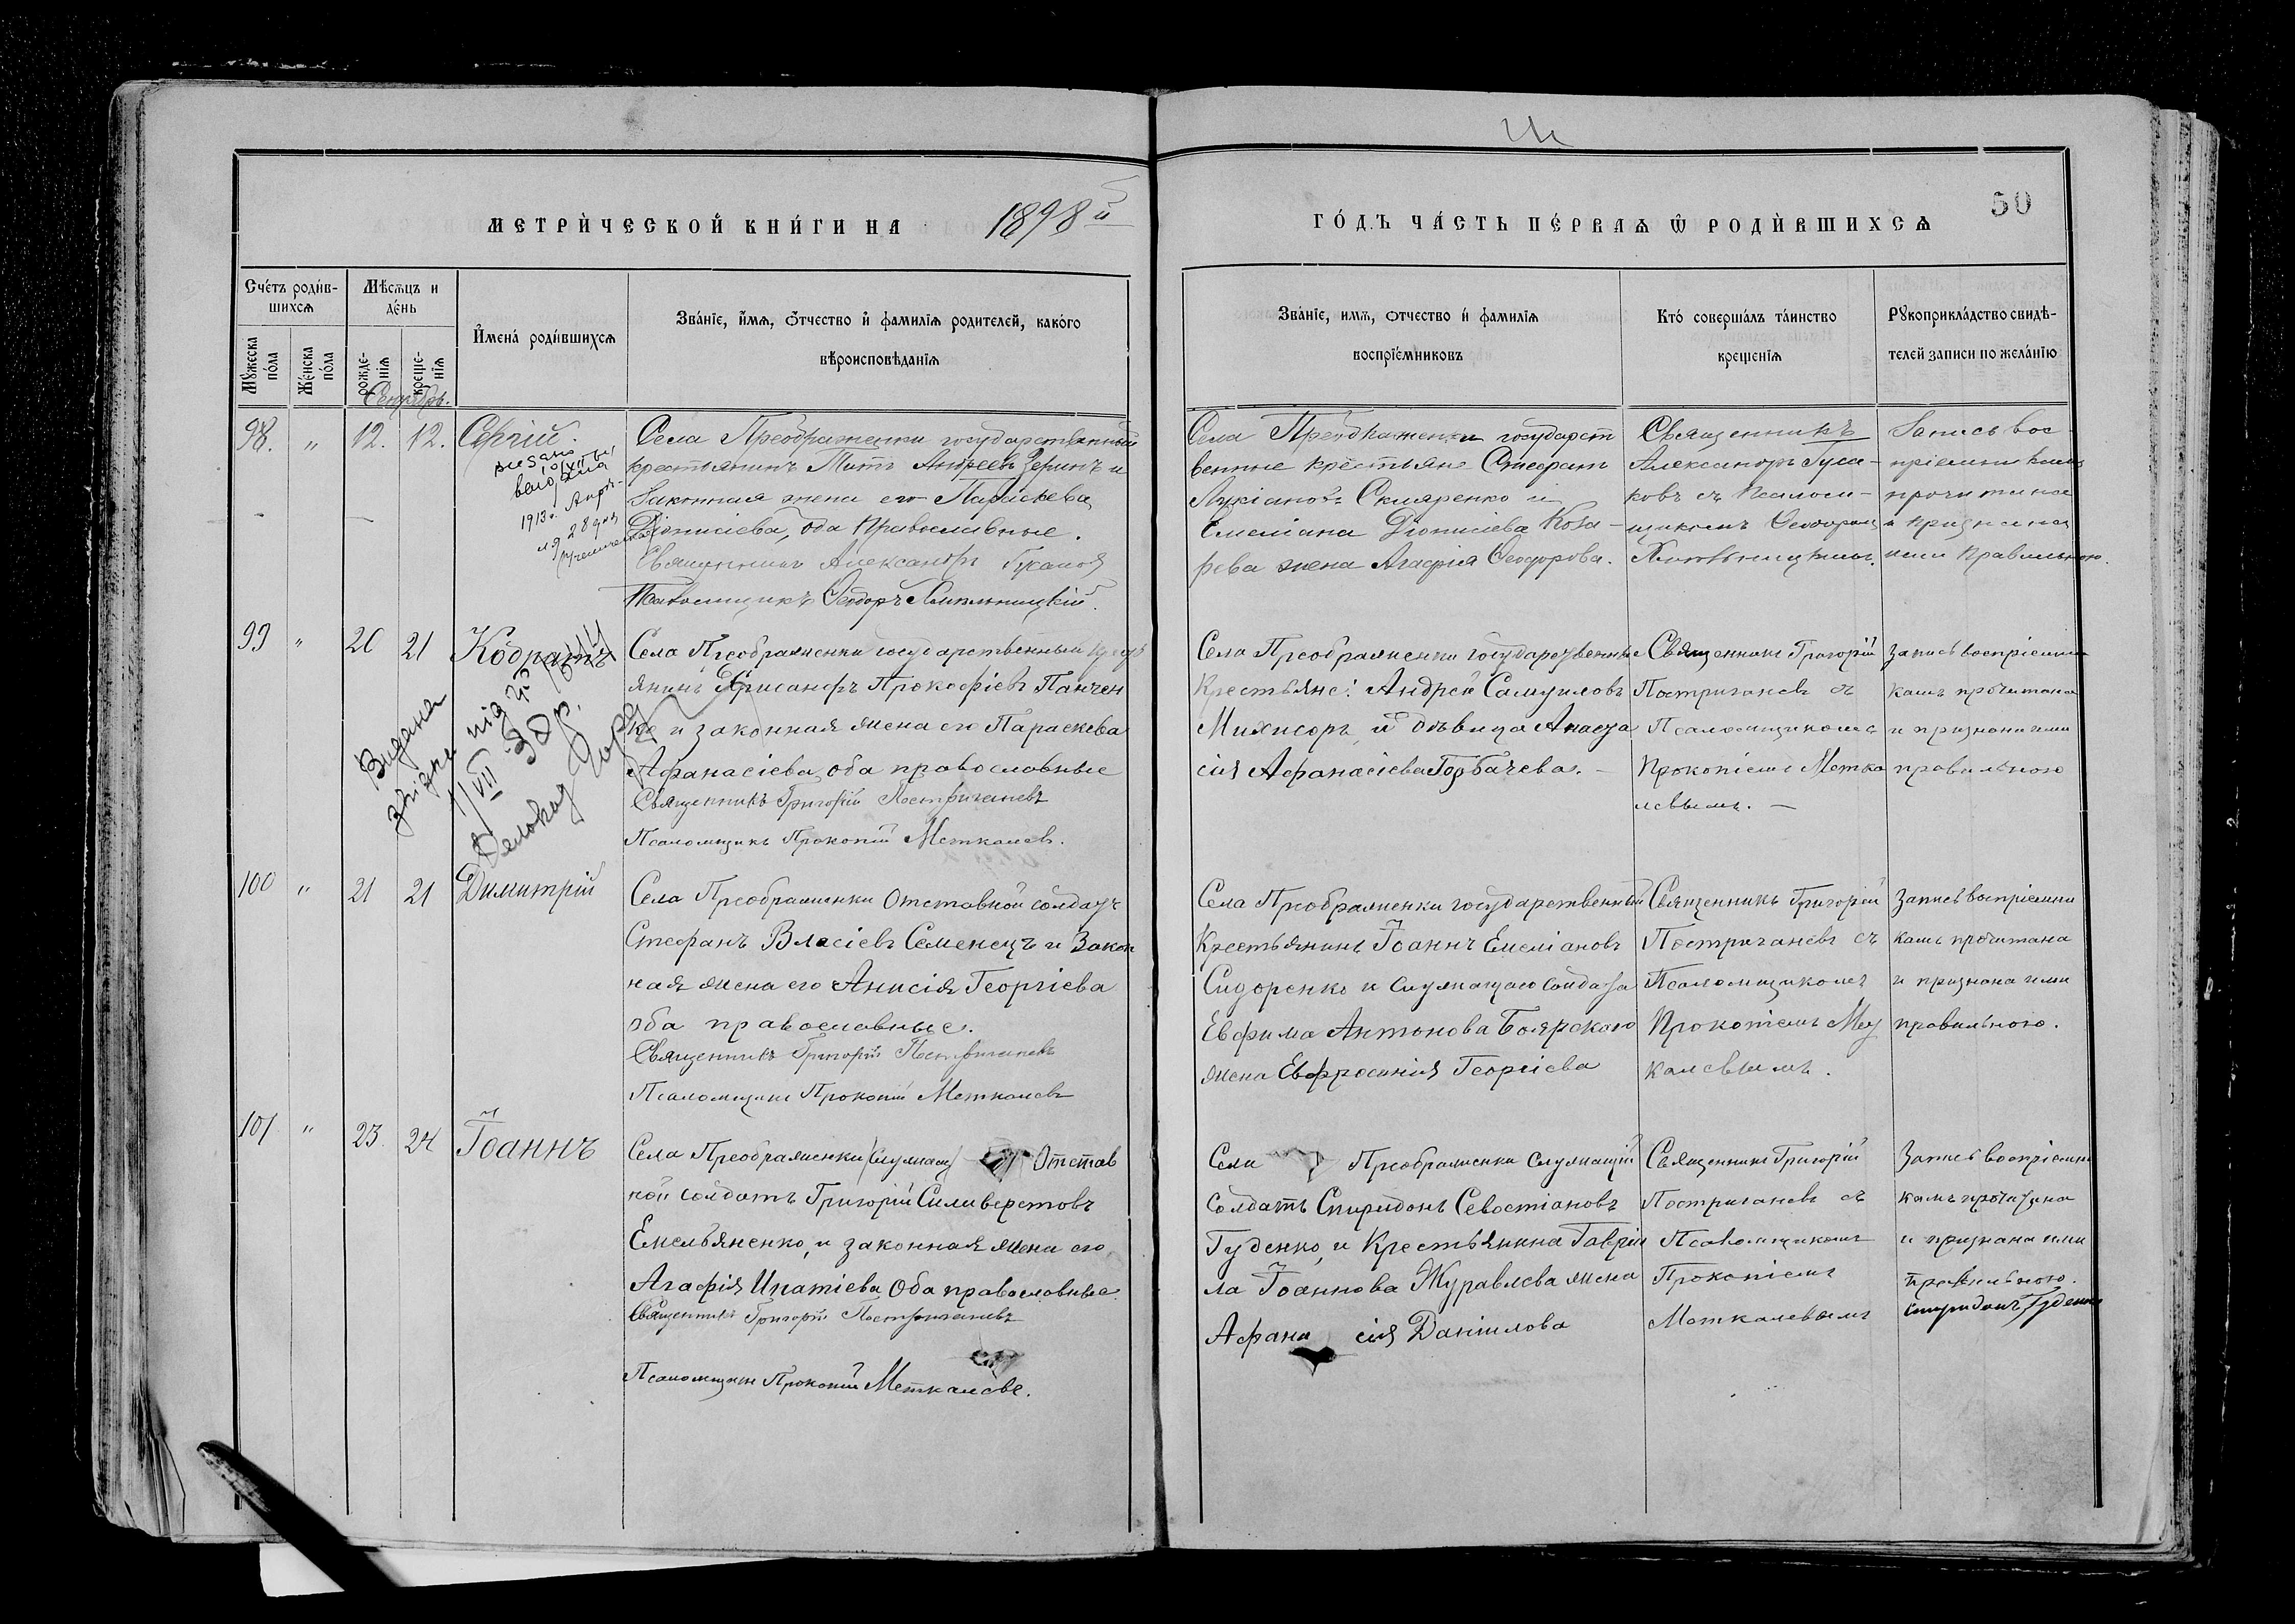 МЕТРИЧЕСКОЙ КНИГИ НА 1898й
ГОДЪ ЧАСТЬ ПЕРВАЯ Ѡ РОДИВШИХСЯ
50
Счетъ родив-
шихся
Мѣсяцъ и
день
Мужеска
пола
Женска
пола
рожде-
нія
креще-
нія
Имена родившихся
Званіе, имя, отчество и фамилія родителей, какого
вѣроисповѣданія
Званіе, имя, отчество и фамилія
воспріемниковъ
Кто совершалъ таинство
крещенія
Рукоприкладство свидѣ-
телей записи по желанію
Сентябрь.
98. " 12. 12. Сергій.
1913 г. Апр.
28 дня
Села Преображенки государственный
крестьянинъ Титъ Андреевъ и
Законная жена его
Діонисіева, оба Православные.
Священникъ Александръ Гусаковъ
Псаломщикъ Ѳеодоръ Хмельницкій.
Села Преображенки государст
венные крестьяне Стефанъ
Лукіановъ Скляренко и
Емеліана Діонисіева Коза-
рева жена Агафія Ѳеодорова.
Священникъ
Александръ Гуса-
ковъ съ Псалом-
щикомъ Ѳеодоромъ
Хмѣльницкимъ.
Запись вос
пріемникамъ
прочитана
и признана
ими правильною.
99 " 20 21 Кодратъ
Видана
згідно під
VII 38 р.
Села Преображенки государственный крест
янинъ Хрисанфъ Прокофіевъ Панчен
ко и законная жена его Параскева
Афанасіева, оба православные
Священникъ Григорій Постригачевъ
Псаломщикъ Прокопій Меткалевъ.
Села Преображенки государственные
Крестьяне: Андрей Самуиловъ
и дѣвица Анаста
сія Афанасіева Горбачева. —
Священникъ Григорій
Постригачевъ съ
Псаломщикомъ
Прокопіемъ Метка
левымъ. —
Запись воспріемни
камъ прочитана
и признана ими
правильною
100 " 21 21 Димитрій
Села Преображенки Отставной солдатъ
Стефанъ Власіевъ Семенецъ и Закон
ная жена его Анисія Георгіева
оба православные.
Священникъ Григорій Постригачевъ
Псаломщикъ Прокопій Меткалевъ
Села Преображенки государственный
Крестьянинъ Іоаннъ Емеліановъ
Сидоренко и служащаго солдата
Евфима Антонова Боярскаго
жена Евфросинія Георгіева
Священникъ Григорій
Постригачевъ съ
Псаломщикомъ
Прокопіемъ Мет
калевымъ.
Запись воспріемни
камъ прочитана
и признана ими
правильною.
101 " 23. 24 Іоаннъ
Села Преображенки (служащ) Отстав
ной солдатъ Григорій Силиверстовъ
Емельяненко, и законная жена его
Агафія Ипатіева Оба православные
Священникъ Григорій Постригачевъ
Псаломщикъ Прокопій Меткалевъ.
Села Преображенки служащій
Солдатъ Спиридонъ Севостіановъ
Гуденко, и Крестьянина Гавріи
ла Іоаннова Журавлева жена
Афана сія Даніилова
Священникъ Григорій
Постригачевъ съ
Псаломщикомъ
Прокопіемъ
Меткалевымъ
Запись воспріемни
камъ прочитана
и признана ими
правильною.
Спиридонъ Гуденко